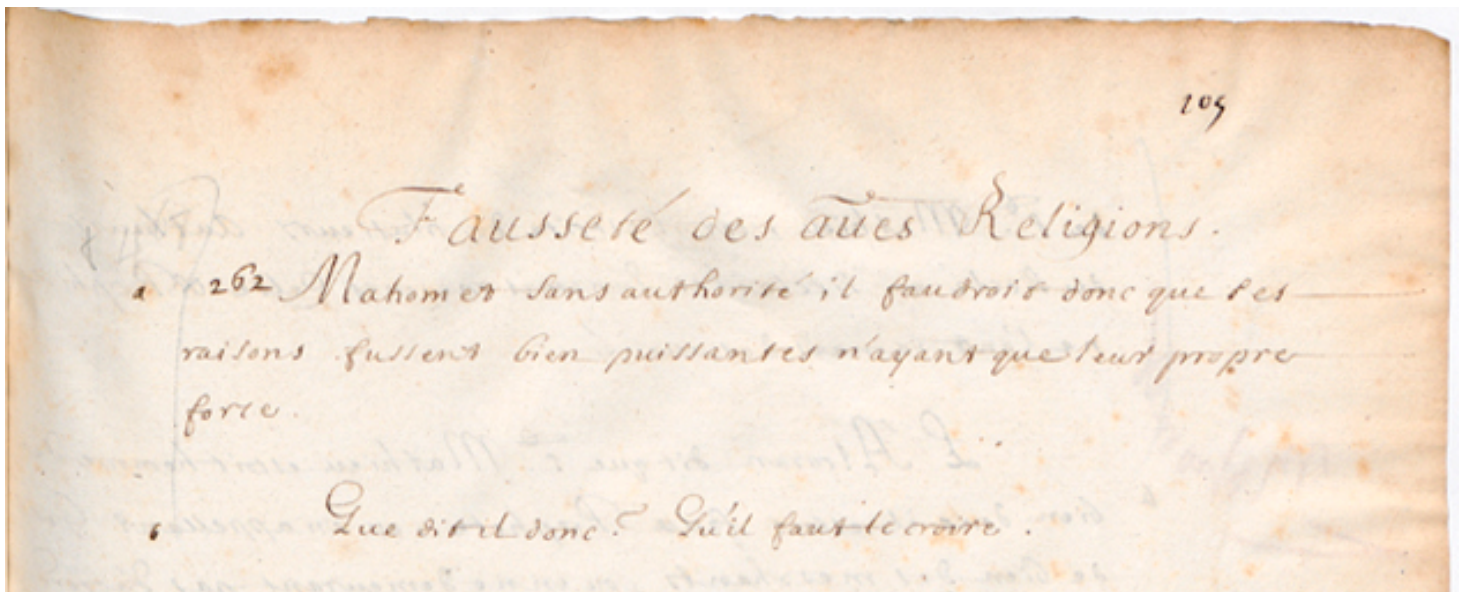 105
Fausseté des aũes Religions.
a 262 Mahomet sans authorité il faudroit donc que ses
raisons fussent bien puissantes n'ayant que leur propre
force.
b Que dit il donc? Qu'il faut le croire.